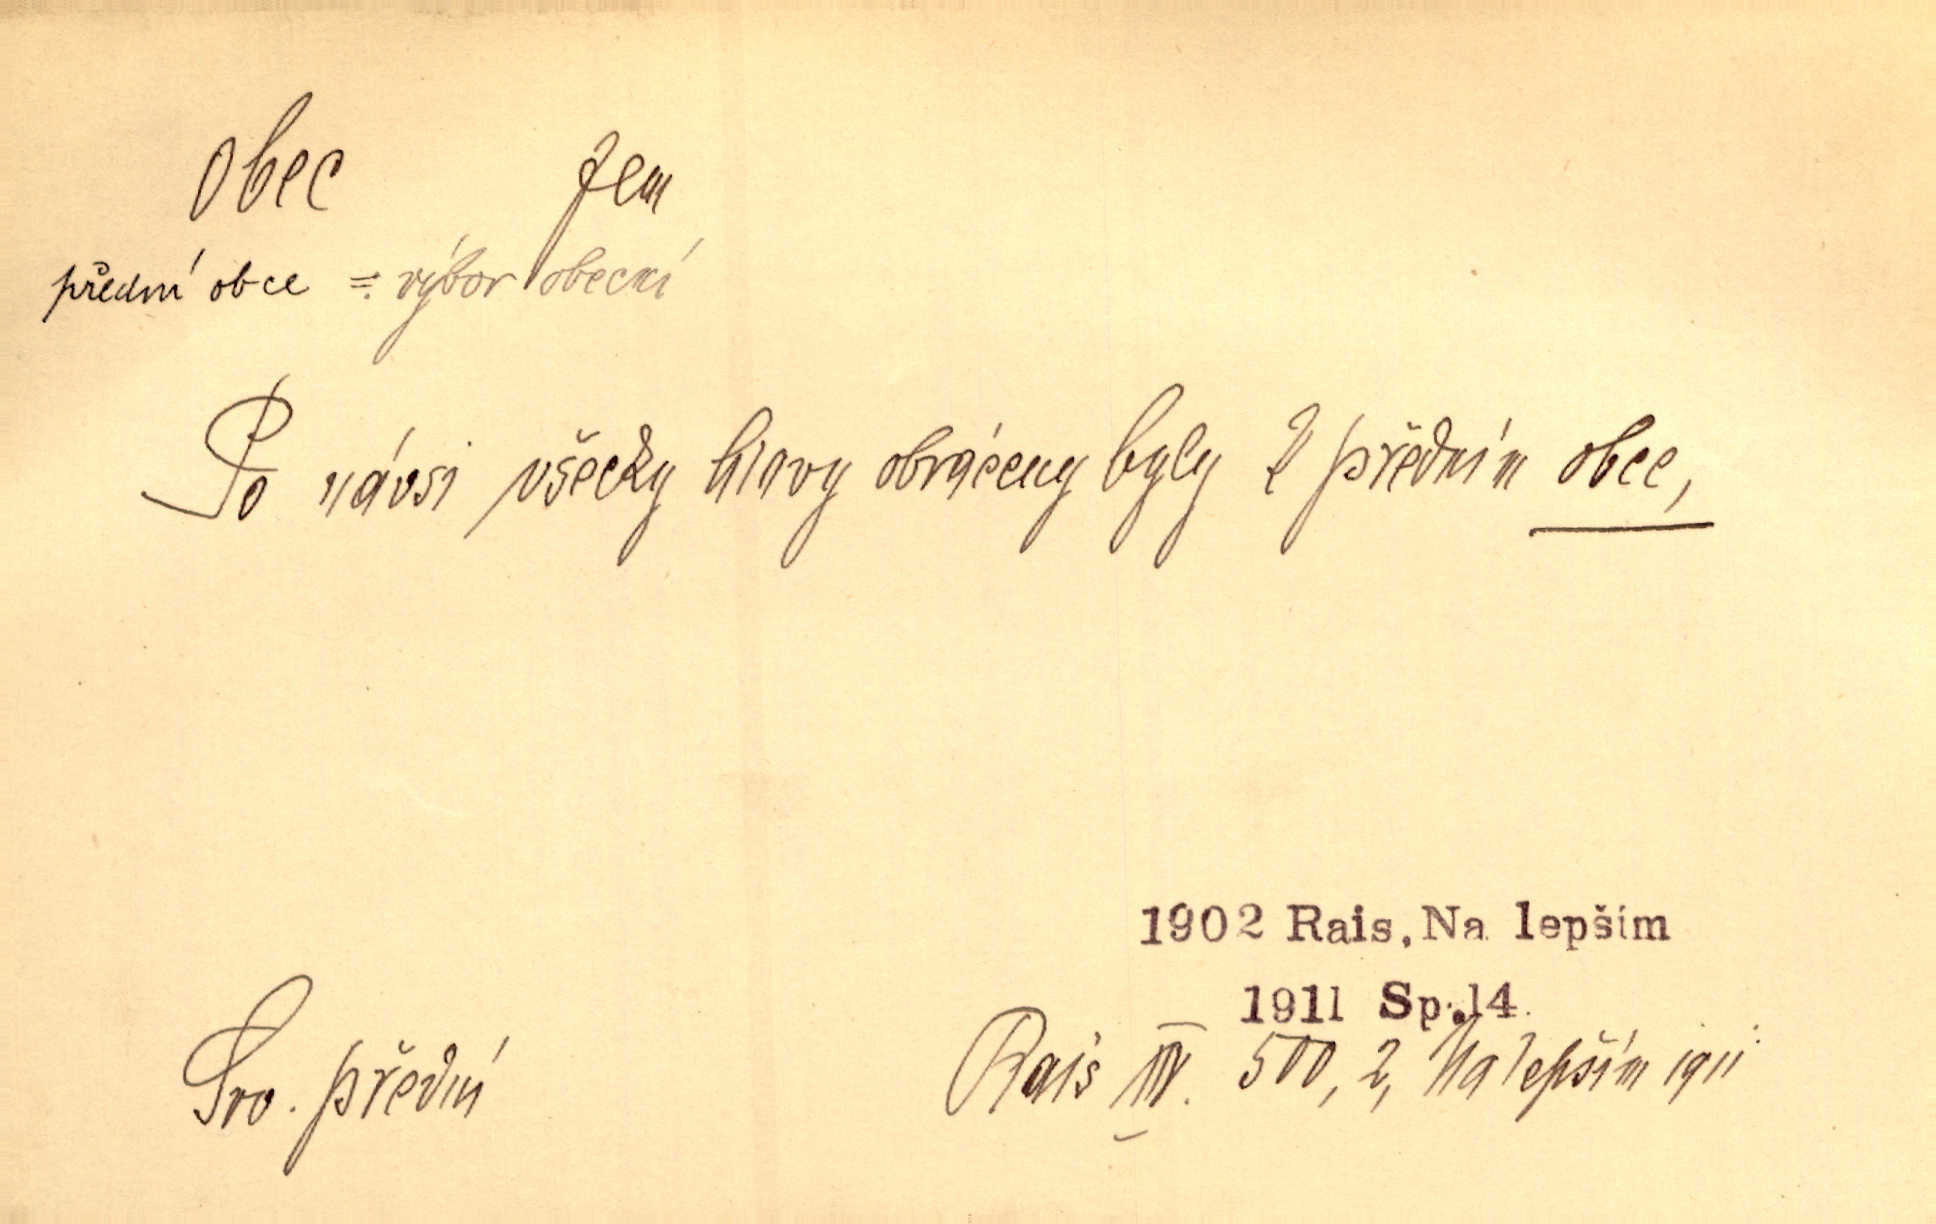 obec fem
přední obce = výbor obecní
Po návsi všecky hlavy obráceny byly k předním obce,
1902 Rais, Na lepším
1911 Sp. 14.
Srv. přední
Rais IV. 500, 2, Na lepším 1911